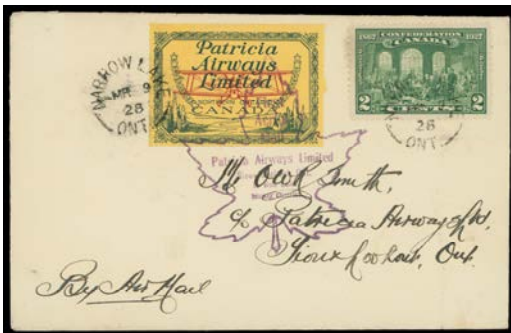 Patricia
Airways
Limited
CANADA
1867 CONFEDERATION 1927
CANADA
2 CENTS 2
NARROW LAKE
MR 9
28
ONT.
28
ONT.
Patricia Airways Limited
Mr Owk Smith,
c/o Patricia Airways Ltd.
Sioux Lookout, Ont.
By Air Mail